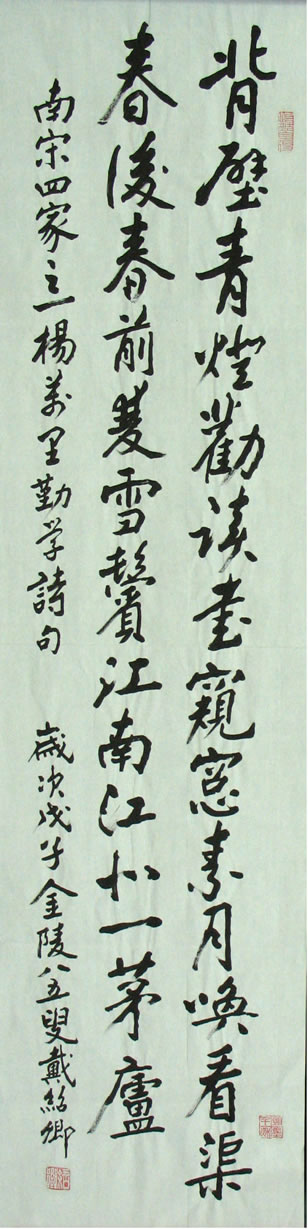 背壁青燈勸读書窺窓素月喚看渠
春後春前雙雪鬢江南江北一茅廬
南宋四家之一楊萬里勤学詩句
歲次戊子金陵八五叟戴紹卿